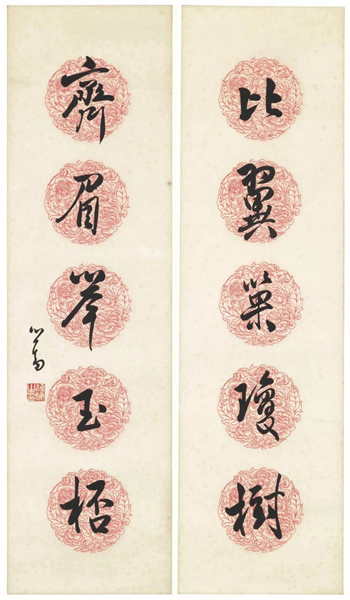 比翼巢瓊樹
齊眉舉玉桮
心畬